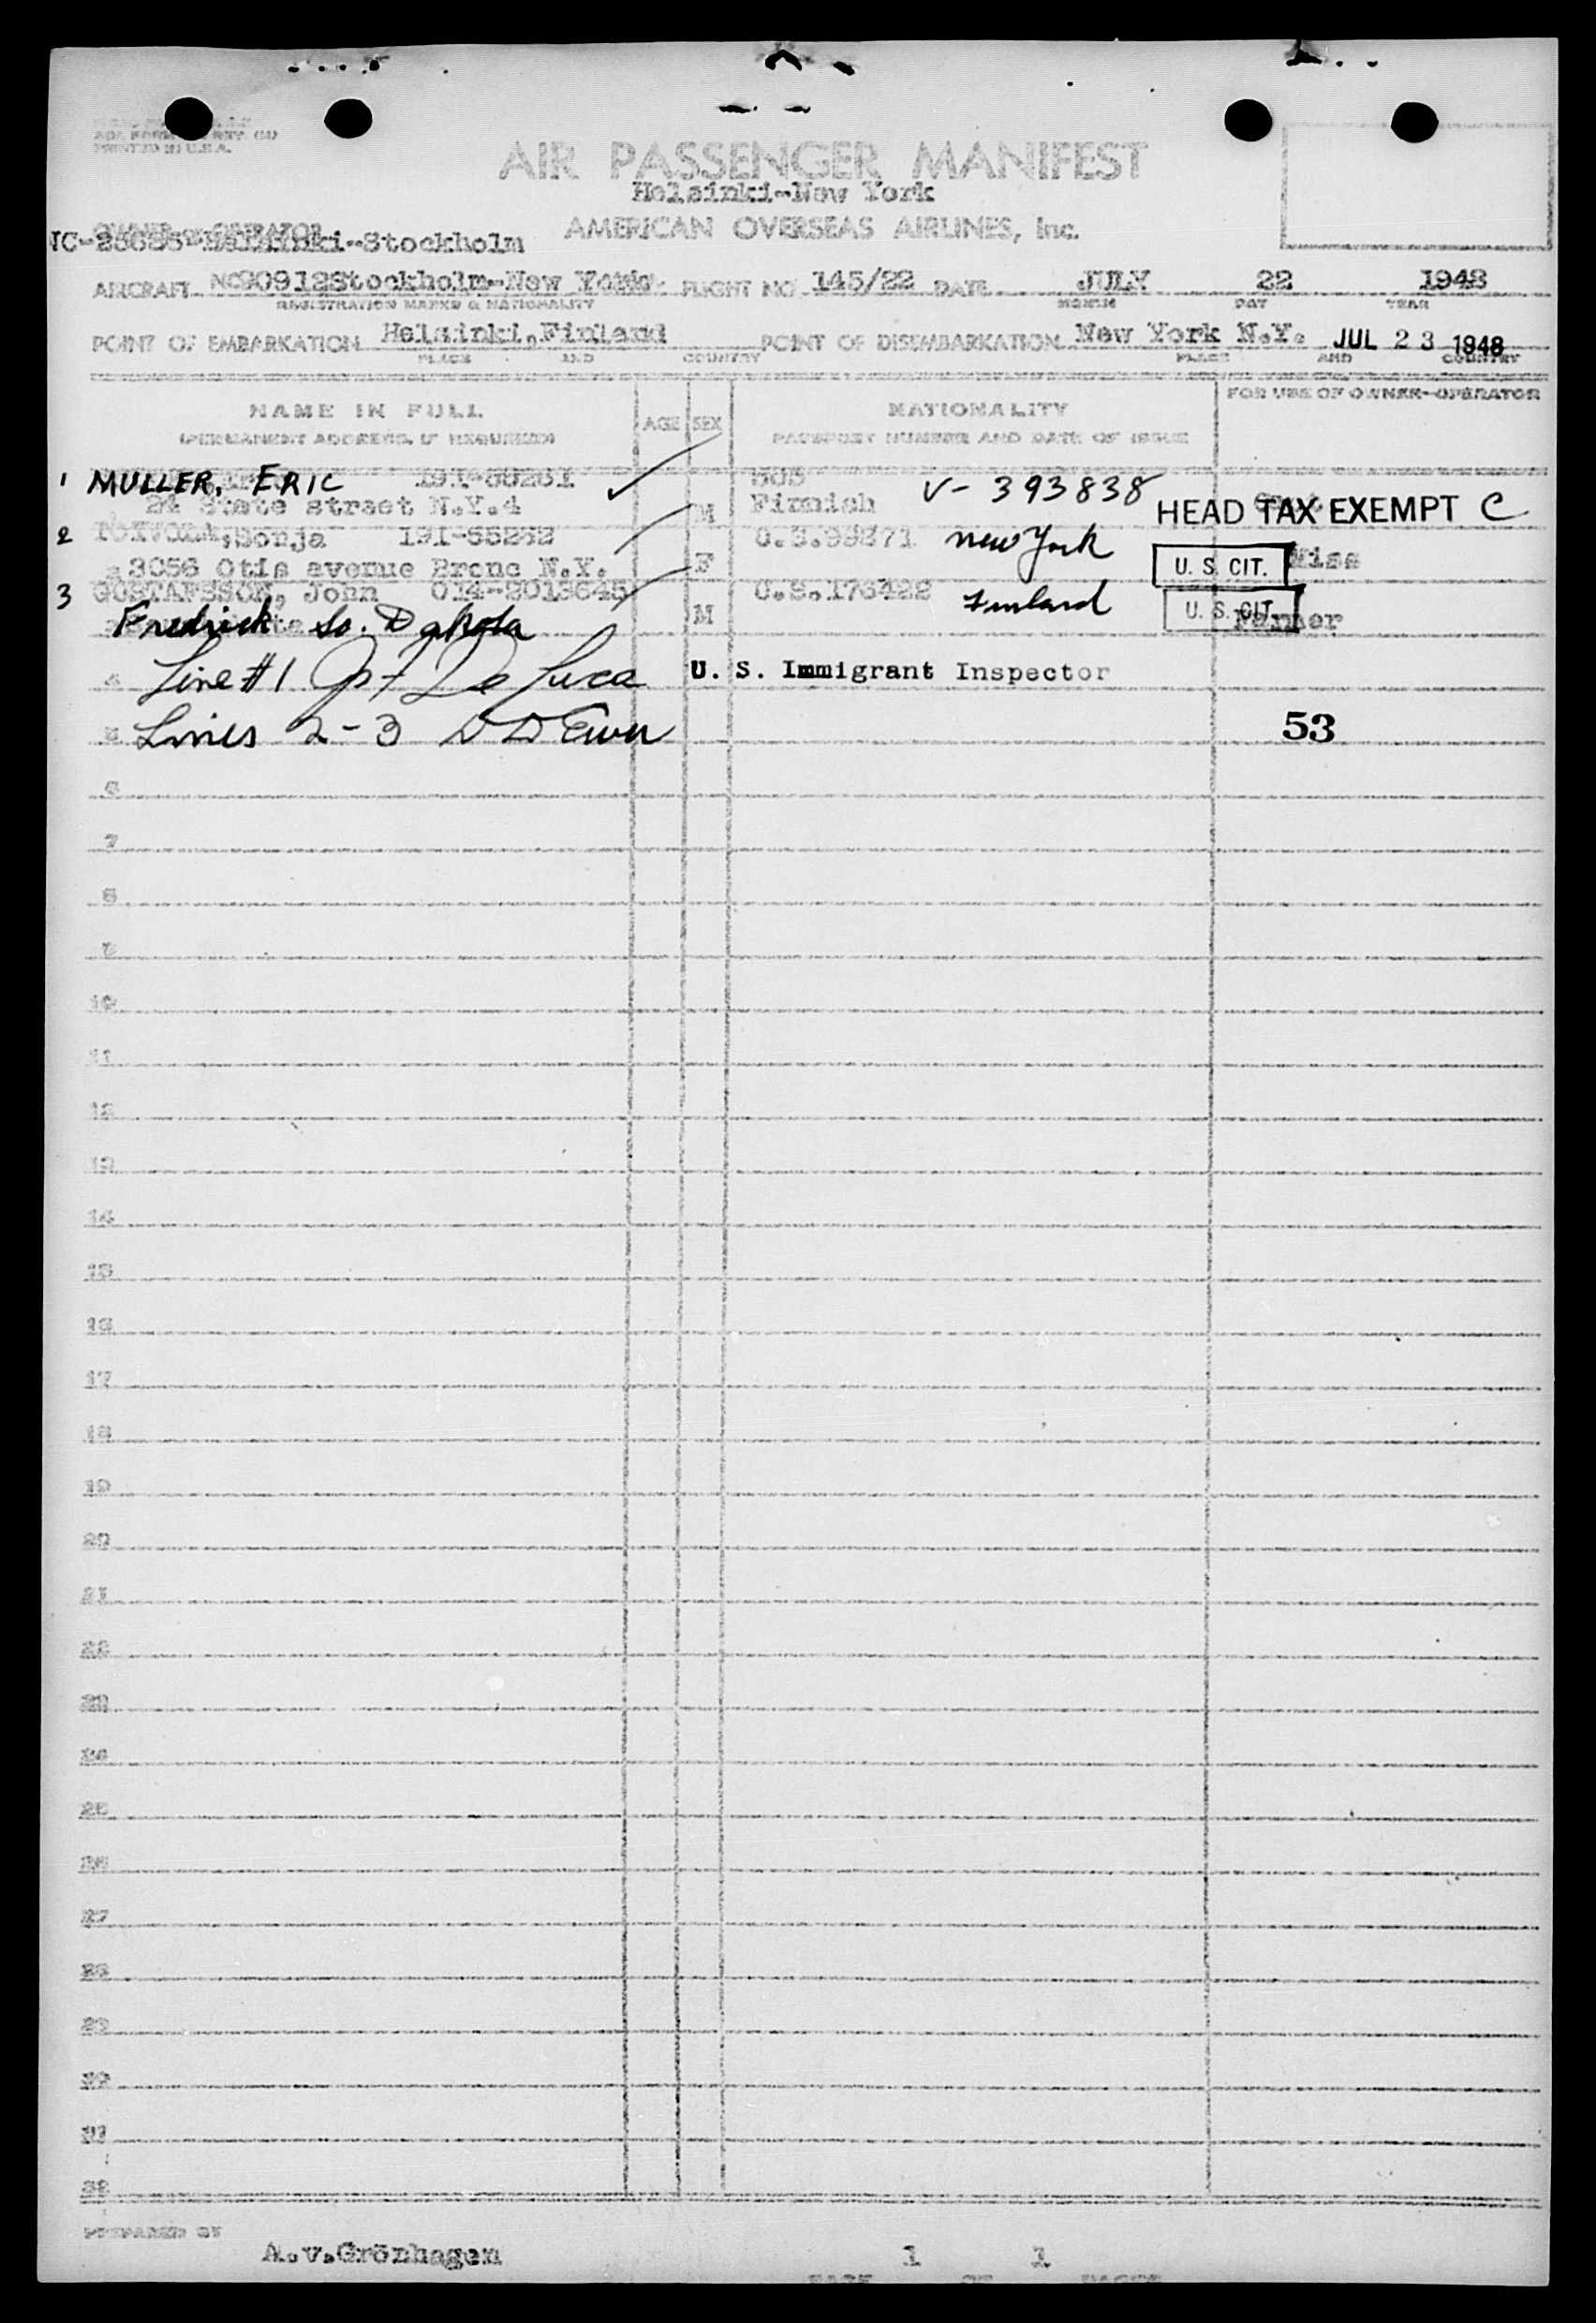 PRINTED IN U.S.A.
AIR PASSENGER MANIFEST
Helsinki-New York
AMERICAN OVERSEAS AIRLINES, Inc.
Helsinki-Stockholm
AIRCRAFT NC90912 Stockholm-New York FLIGHT NO 145/22 DATE JULY 22 1948
REGISTRATION MARKS & NATIONALITY MONTH DAY YEAR
POINT OF EMBARKATION Helsinki,Finland POINT OF DISEMBARKATION New York N.Y. JUL 23 1948
PLACE AND COUNTRY PLACE AND COUNTRY
NAME IN FULL AGE SEX NATIONALITY FOR USE OF OWNER-OPERATOR
(PERMANENT ADDRESS, IF REQUIRED) PASSPORT NUMBER AND DATE OF ISSUE
1 MULLER, ERIC V-393838
24 State street N.Y.4 M Finnish HEAD TAX EXEMPT C
2 Sonja 191-55262 U.S.99371 New York
3056 Otis avenue Bronc N.Y. F U.S. CIT. Miss
3 GUSTAFSSON, John U.S.176422 Finland
Fredrick So. Dakota M U.S. CIT. Farmer
Line #1 De Luca U. S. Immigrant Inspector
5 Lines 2-3 53
6
7
8
9
10
11
12
13
14
15
16
17
18
19
20
21
22
23
24
25
26
27
28
29
30
31
32
PREPARED BY
A.v.Grönhagen 1 1
PAGE OF PAGES